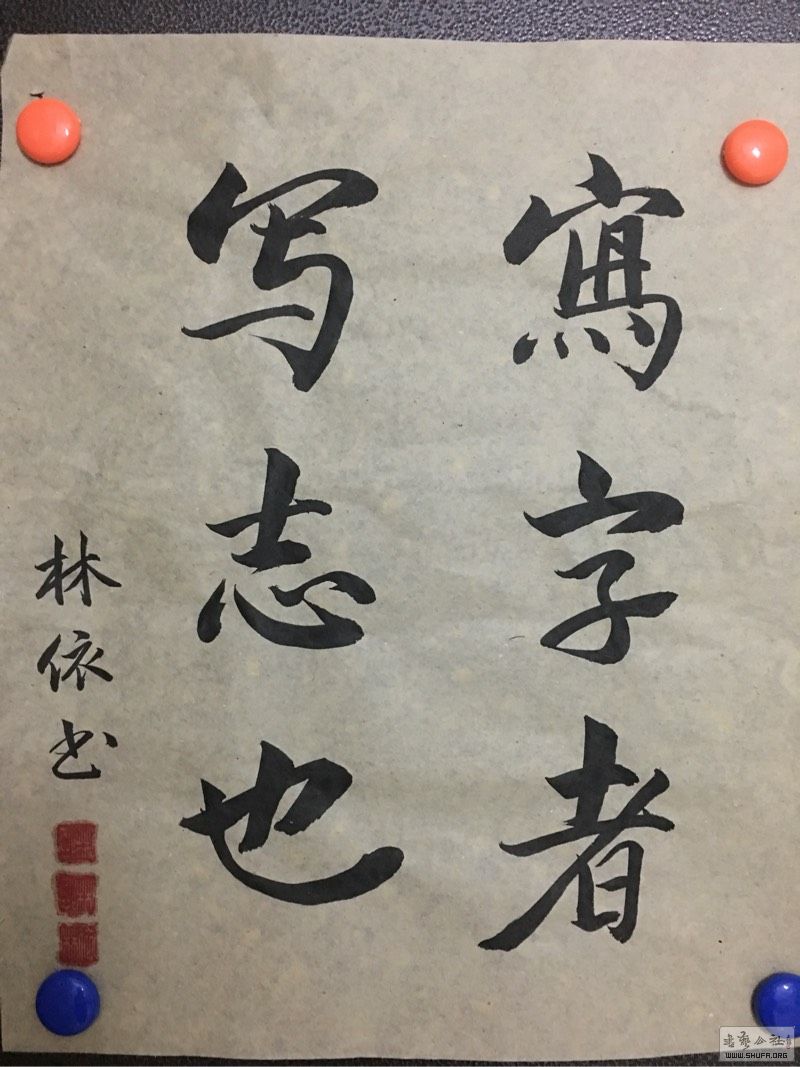 寫字者
写志也
林依书
书艺公社
WWW.SHUFA.ORG